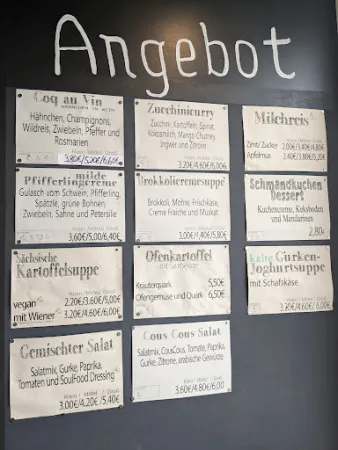 Angebot
Coq au Vin
Hähnchen, Champignons,
Wildreis, Zwiebeln, Pfeffer und
Rosmarien
3,80€/5,20€/6,60€
milde
Pfifferlingcreme
Gulasch vom Schwein, Pfifferling,
Spätzle, grüne Bohnen,
Zwiebeln, Sahne und Petersilie
3,60€/5,00€/6,40€
Sächsische
Kartoffelsuppe
vegan 2.20€/3.60€/5.00€
mit Wiener 3.20€/4.60€/6.00€
Gemischter Salat
Salatmix, Gurke, Paprika,
Tomaten und SoulFood Dressing
Klein / Mittel / Groß
3.00€/4.20€/5.40€
Zucchinicurry
Zucchini, Kartoffeln, Spinat,
Kokosmilch, Mango Chutney,
Ingwer und Zitrone
3.20€/4.60€/6.00€
Brokkolicremesuppe
Brokkoli, Möhre, Frischkäse,
Creme Fraiche und Muskat
Ofenkartoffel
Kräuterquark 5,50€
Ofengemüse und Quark 6,50€
Cous Cous Salat
Salatmix, CousCous, Tomate, Paprika,
Gurke, Zitrone, arabische Gewürze
Klein / Mittel / Groß
3.60€/4.80€/6,00
Milchreis
Zimt/ Zucker 2.00€/3.40€/4.80€
Apfelmus 2.40€/3.80€/5.20€
Schmandkuchen
Dessert
Kuchencreme, Keksboden
und Mandarinen
2,80€
Kalte Gurken-
Joghurtsuppe
mit Schafskäse
3.20€/4.60€/6.00€